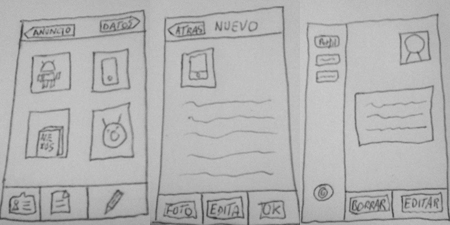 ANUNCIO
DATOS
ATRAS
NUEVO
FOTO
EDITA
OK
Perfil
BORRAR
EDITAR